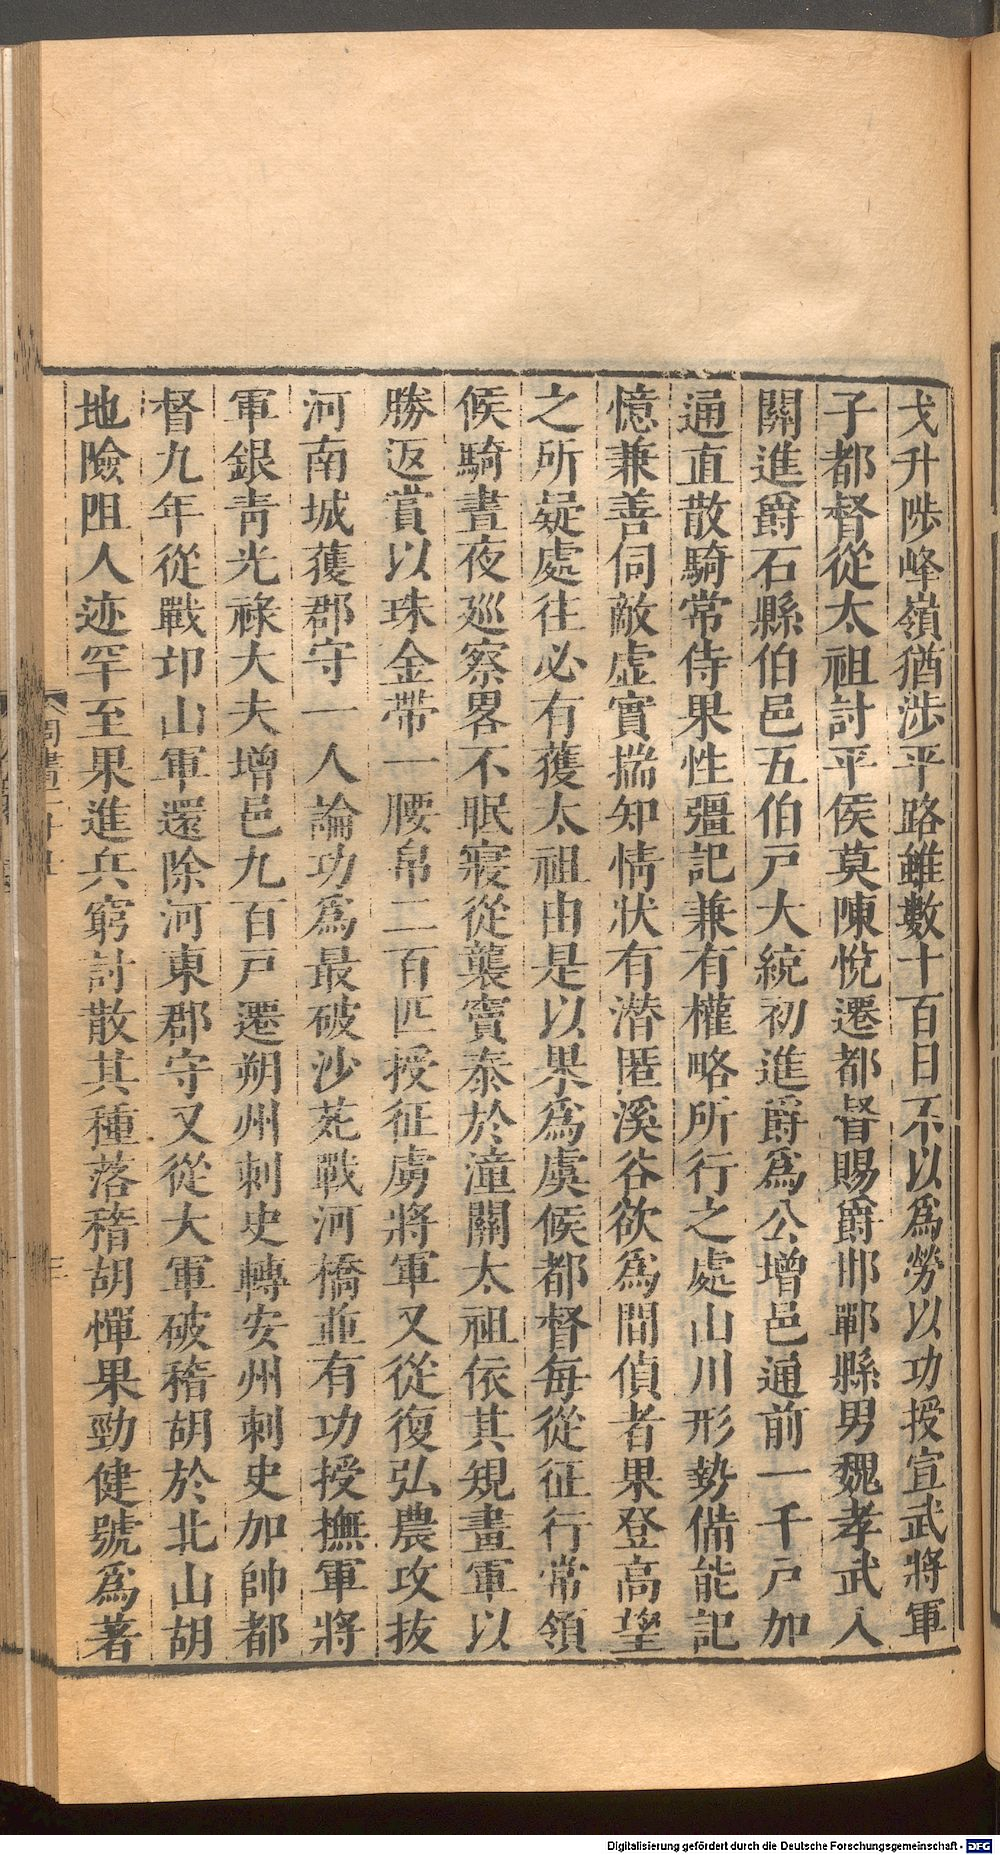 戈升陟峰嶺猶涉平路雖數十百日不以爲勞以功授宣武將軍
子都督從太祖討平侯莫陳悅遷都督賜爵邯鄲縣男魏孝武入
關進爵石縣伯邑五伯戸大統初進爵爲公增邑通前一千戸加
通直散騎常侍果性彊記兼有權略所行之處山川形勢備能記
憶兼善伺敵虛實揣知情狀有潛匿溪谷欲爲間偵者果登高望
之所疑處往必有獲太祖由是以果爲虞候都督每從征行常領
候騎晝夜巡察畧不眠寢從襲竇泰於潼關太祖依其規畫軍以
勝返賞以珠金帶一腰帛二百匹授征虜將軍又從復弘農攻拔
河南城獲郡守一人論功爲最破沙苑戰河橋並有功授撫軍將
軍銀靑光祿大夫增邑九百戸遷朔州刺史轉安州刺史加帥都
督九年從戰邙山軍還除河東郡守又從大軍破稽胡於北山胡
地險阻人迹罕至果進兵窮討散其種落稽胡憚果勁健號爲著
Digitalisierung gefördert durch die Deutsche Forschungsgemeinschaft - DFG